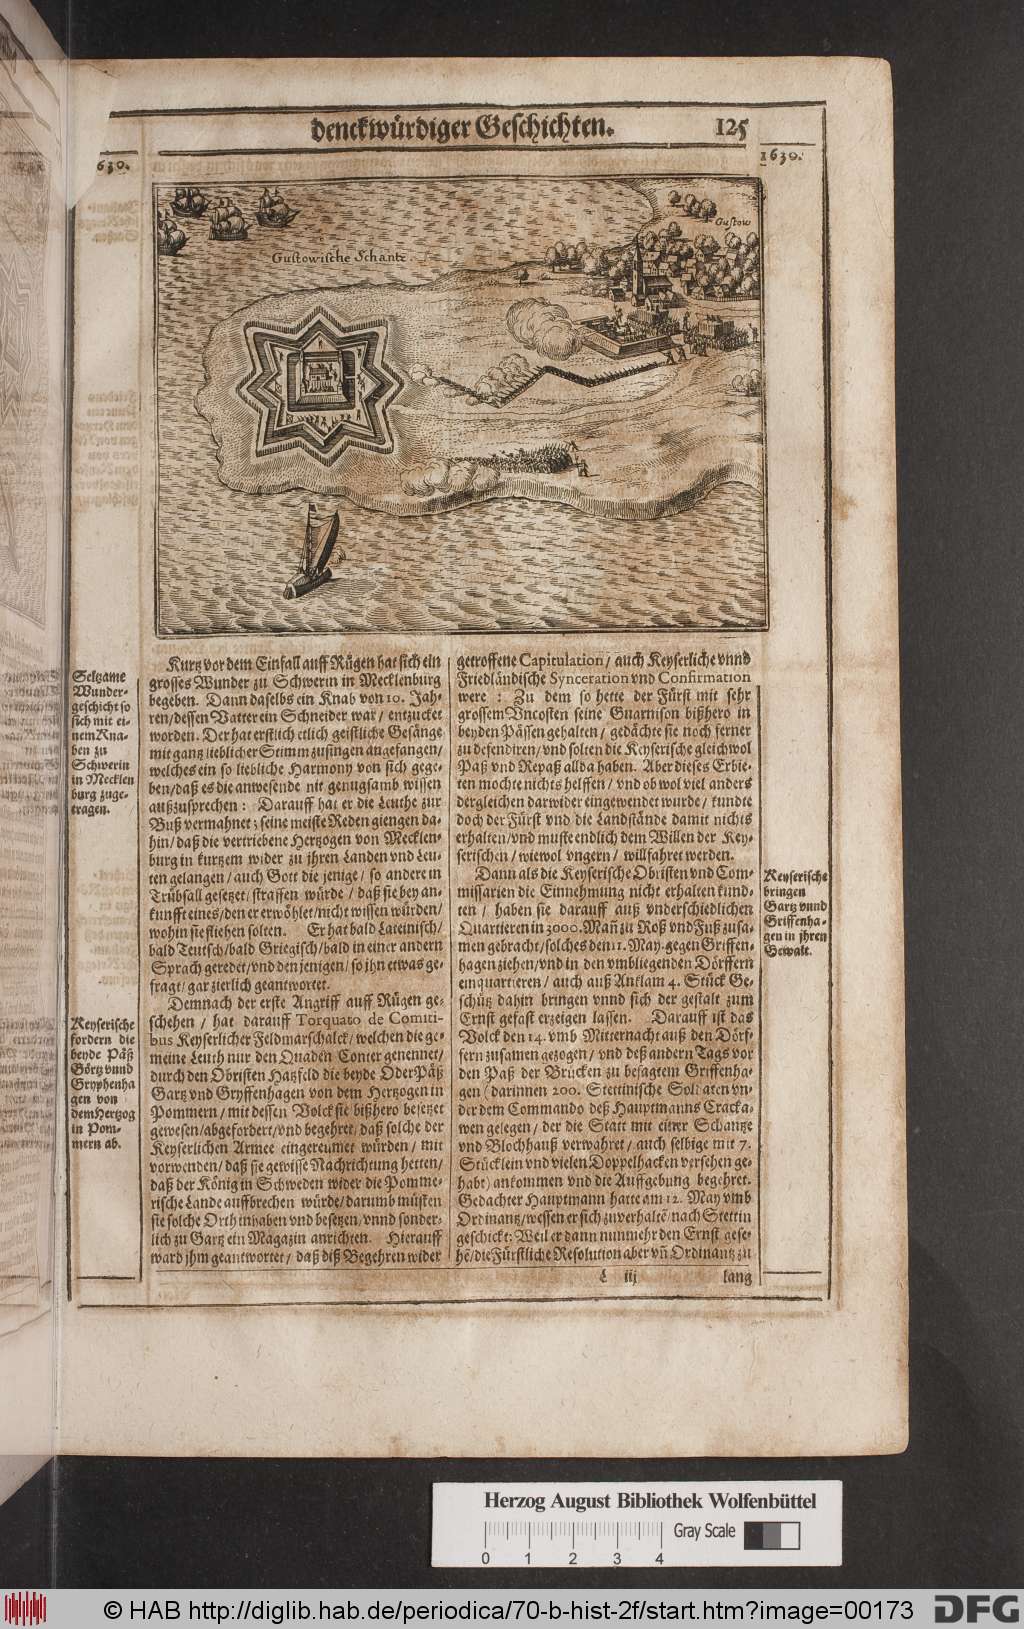 denckwürdiger Geschichten.
125
630.
1630.
Gustow
Gustowische Schantz.
Seltzame
Wunder-
geschicht so
sich mit ei-
nem Kna-
ben zu
Schwerin
in Mecklen
burg zuge-
tragen.
Keyserische
fordern die
beyde Päß
Görtz vnnd
Gryphenha
gen von
dem Hertzog
in Pom-
mern ab.
Kurtz vor dem Einfall auff Rügen hat sich ein
grosses Wunder zu Schwerin in Mecklenburg
begeben. Dann daselbs ein Knab von 10. Jah-
ren/dessen Vatter ein Schneider war/ entzucket
worden. Der hat erstlich etlich geistliche Gesänge
mit gantz lieblicher Stimm zusingen angefangen/
welches ein so liebliche Harmony von sich gege-
ben/daß es die anwesende nit genugsamb wissen
außzusprechen: Darauff hat er die Leuthe zur
Buß vermahnet; seine meiste Reden giengen da-
hin/daß die vertriebene Hertzogen von Mecklen-
burg in kurtzem wider zu jhren Landen vnd Leu-
ten gelangen/auch Gott die jenige/ so andere in
Trübsall gesetzet/straffen würde/ daß sie bey an-
kunfft eines/den er erwöhlet/nicht wissen würden/
wohin sie fliehen solten. Er hat bald Lateinisch/
bald Teutsch/bald Griegisch/bald in einer andern
Sprach geredet/vnd den jenigen/so jhn etwas ge-
fragt/gar zierlich geantwortet.
Demnach der erste Angriff auff Rügen ge-
schehen / hat darauff Torquato de Comiti-
bus Keyserlicher Feldmarschalck/welchen die ge-
meine Leuth nur den Quaden Conter genennet/
durch den Obristen Hatzfeld die beyde Oder Päß
Gartz vnd Gryffenhagen von dem Hertzogen in
Pommern/mit dessen Volck sie bißhero besetzet
gewesen/abgefordert/vnd begehret/daß solche der
Keyserlichen Armee eingereumet würden/ mit
vorwenden/daß sie gewisse Nachrichtung hetten/
daß der König in Schweden wider die Pomme-
rische Lande auffbrechen würde/darumb müsten
sie solche Orth inhaben vnd besetzen/vnnd sonder-
lich zu Gartz ein Magazin anrichten. Hierauff
ward jhm geantwortet/ daß diß Begehren wider
getroffene Capitulation/ auch Keyserliche vnnd
Friedländische Synceration vnd Confirmation
were: Zu dem so hette der Fürst mit sehr
grossem Vncosten seine Guarnison bißhero in
beyden Pässen gehalten/ gedächte sie noch ferner
zu defendiren/vnd solten die Keyserische gleichwol
Paß vnd Repaß allda haben. Aber dieses Erbie-
ten mochte nichts helffen/ vnd ob wol viel anders
dergleichen darwider eingewendet wurde/ kundte
doch der Fürst vnd die Landstände damit nichts
erhalten/vnd muste endlich dem Willen der Key-
serischen/wiewol vngern/ willfahret werden.
Dann als die Keyserische Obristen vnd Com-
missarien die Einnehmung nicht erhalten kund-
ten / haben sie darauff auß vnderschiedlichen
Quartieren in 3000. Mañ zu Roß vnd Fuß zusa-
men gebracht/solches den 11. May gegen Griffen-
hagen ziehen/vnd in den vmbliegenden Dörffern
einquartieren/ auch auß Anklam 4. Stück Ge-
schütz dahin bringen vnnd sich der gestalt zum
Ernst gefast erzeigen lassen. Darauff ist das
Volck den 14. vmb Mitternacht auß den Dörf-
fern zusamen gezogen/ vnd deß andern Tags vor
den Paß der Brücken zu besagtem Griffenha-
gen (darinnen 200. Stettinische Soldaten vn-
der dem Commando deß Hauptmanns Cracka-
wen gelegen/ der die Statt mit einer Schantze
vnd Blochhauß verwahret/ auch selbige mit 7.
Stücklein vnd vielen Doppelhacken versehen ge-
habt) ankommen vnd die Auffgebung begehret.
Gedachter Hauptmann hatte am 12. May vmb
Ordinantz/wessen er sich zuverhaltẽ/nach Stettin
geschickt: Weil er dann nunmehr den Ernst gese-
hẽ/die Fürstliche Resolution aber vñ Ordinantz zu
L iij
lang
Keyserische
bringen
Gartz vnnd
Griffenha-
gen in jhren
Gewalt.
Herzog August Bibliothek Wolfenbüttel
Gray Scale
0 1 2 3 4
© HAB http://diglib.hab.de/periodica/70-b-hist-2f/start.htm?image=00173
DFG